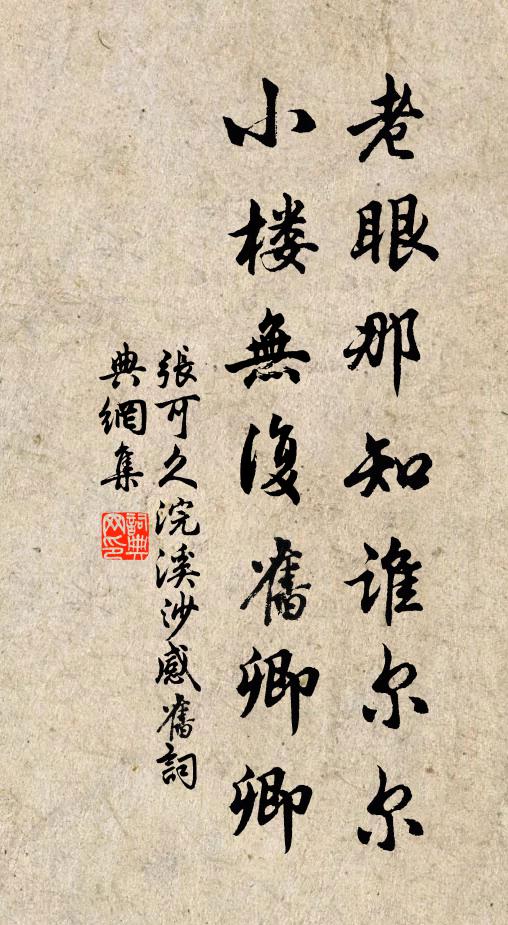 老眼那知谁尔尔
小楼無復舊卿卿
張可久浣溪沙感舊詞
典網集
詞典网印